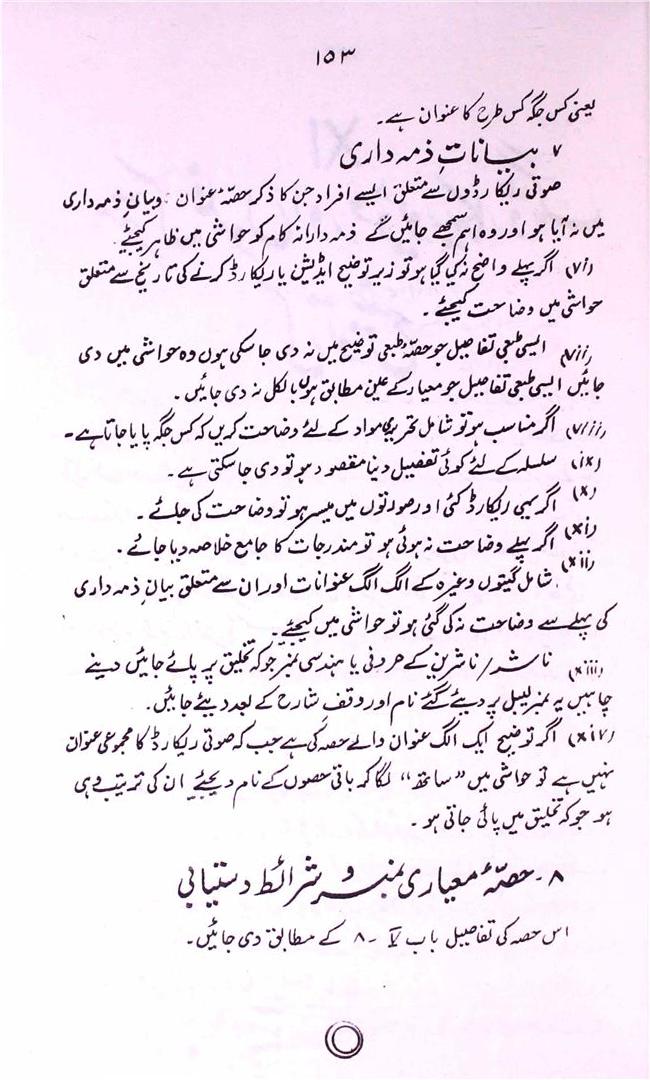 ۱۵۳
یعنی کس جگہ کس طرح کا عنوان ہے۔
۷ بیاناتِ ذمہ داری
صوتی ریکارڈوں سے متعلق ایسے افراد جن کا ذکر حصۂ عنوان و بیانِ ذمہ داری
میں نہ آیا ہو اور وہ اہم سمجھے جائیں گے ذمہ دارانہ کام کو حواشی میں ظاہر کیجئے۔
(vi) اگر پہلے واضح نہ کیا گیا ہو تو زیر توضیح ایڈیشن یا ریکارڈ کرنے کی تاریخ سے متعلق
حواشی میں وضاحت کیجئے۔
(vii) ایسی طبعی تفاصیل جو حصۂ طبعی توضیح میں نہ دی جا سکی ہوں وہ حواشی میں دی
جائیں ایسی طبعی تفاصیل جو معیار کے عین مطابق ہوں بالکل نہ دی جائیں۔
(viii) اگر مناسب ہو تو شامل تحریری مواد کے لئے وضاحت کریں کہ کس جگہ پایا جاتا ہے۔
(ix) سلسلہ کے لئے کوئی تفصیل دینا مقصود ہو تو دی جا سکتی ہے۔
(x) اگر یہی ریکارڈ کئی اور صورتوں میں میسر ہو تو وضاحت کی جائے۔
(xi) اگر پہلے وضاحت نہ ہوئی ہو تو مندرجات کا جامع خلاصہ دیا جائے۔
(xii) شامل گیتوں وغیرہ کے الگ الگ عنوانات اور ان سے متعلق بیانِ ذمہ داری
کی پہلے سے وضاحت نہ کی گئی ہو تو حواشی میں کیجئے۔
(xiii) ناشر/ناشرین کے حروفی یا ہندسی نمبر جو کہ تخلیق پر پائے جائیں دینے
چاہئیں یہ نمبر لیبل پر دیئے گئے نام اور وقفِ شارح کے بعد دیئے جائیں۔
(xiv) اگر توضیح ایک الگ عنوان والے حصہ کی ہے جب کہ صوتی ریکارڈ کا مجموعی عنوان
نہیں ہے تو حواشی میں "ساتھ" لگا کر باقی حصوں کے نام دیجئے ان کی ترتیب وہی
ہو جو کہ تخلیق میں پائی جاتی ہو۔
۸۔ حصۂ معیاری نمبر و شرائط دستیابی
اس حصہ کی تفاصیل باب V ۔۸ کے مطابق دی جائیں۔